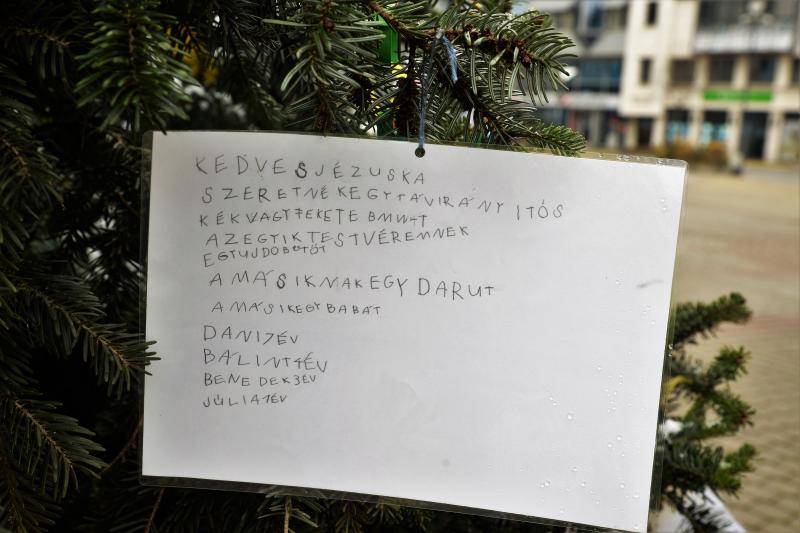 KEDVES JÉZUSKA
SZERETNÉK EGY TÁVIRÁNYITÓS
KÉK VAGY FEKETE BMWT
AZ EGYIK TESTVÉREMNEK
EGY UJ DOBOTÓT
A MÁSIKNAK EGY DARUT
A MÁSIK EGY BABÁT
DANI 7 ÉV
BÁLINT 4 ÉV
BENEDEK 3 ÉV
JÚLIA 1 ÉV